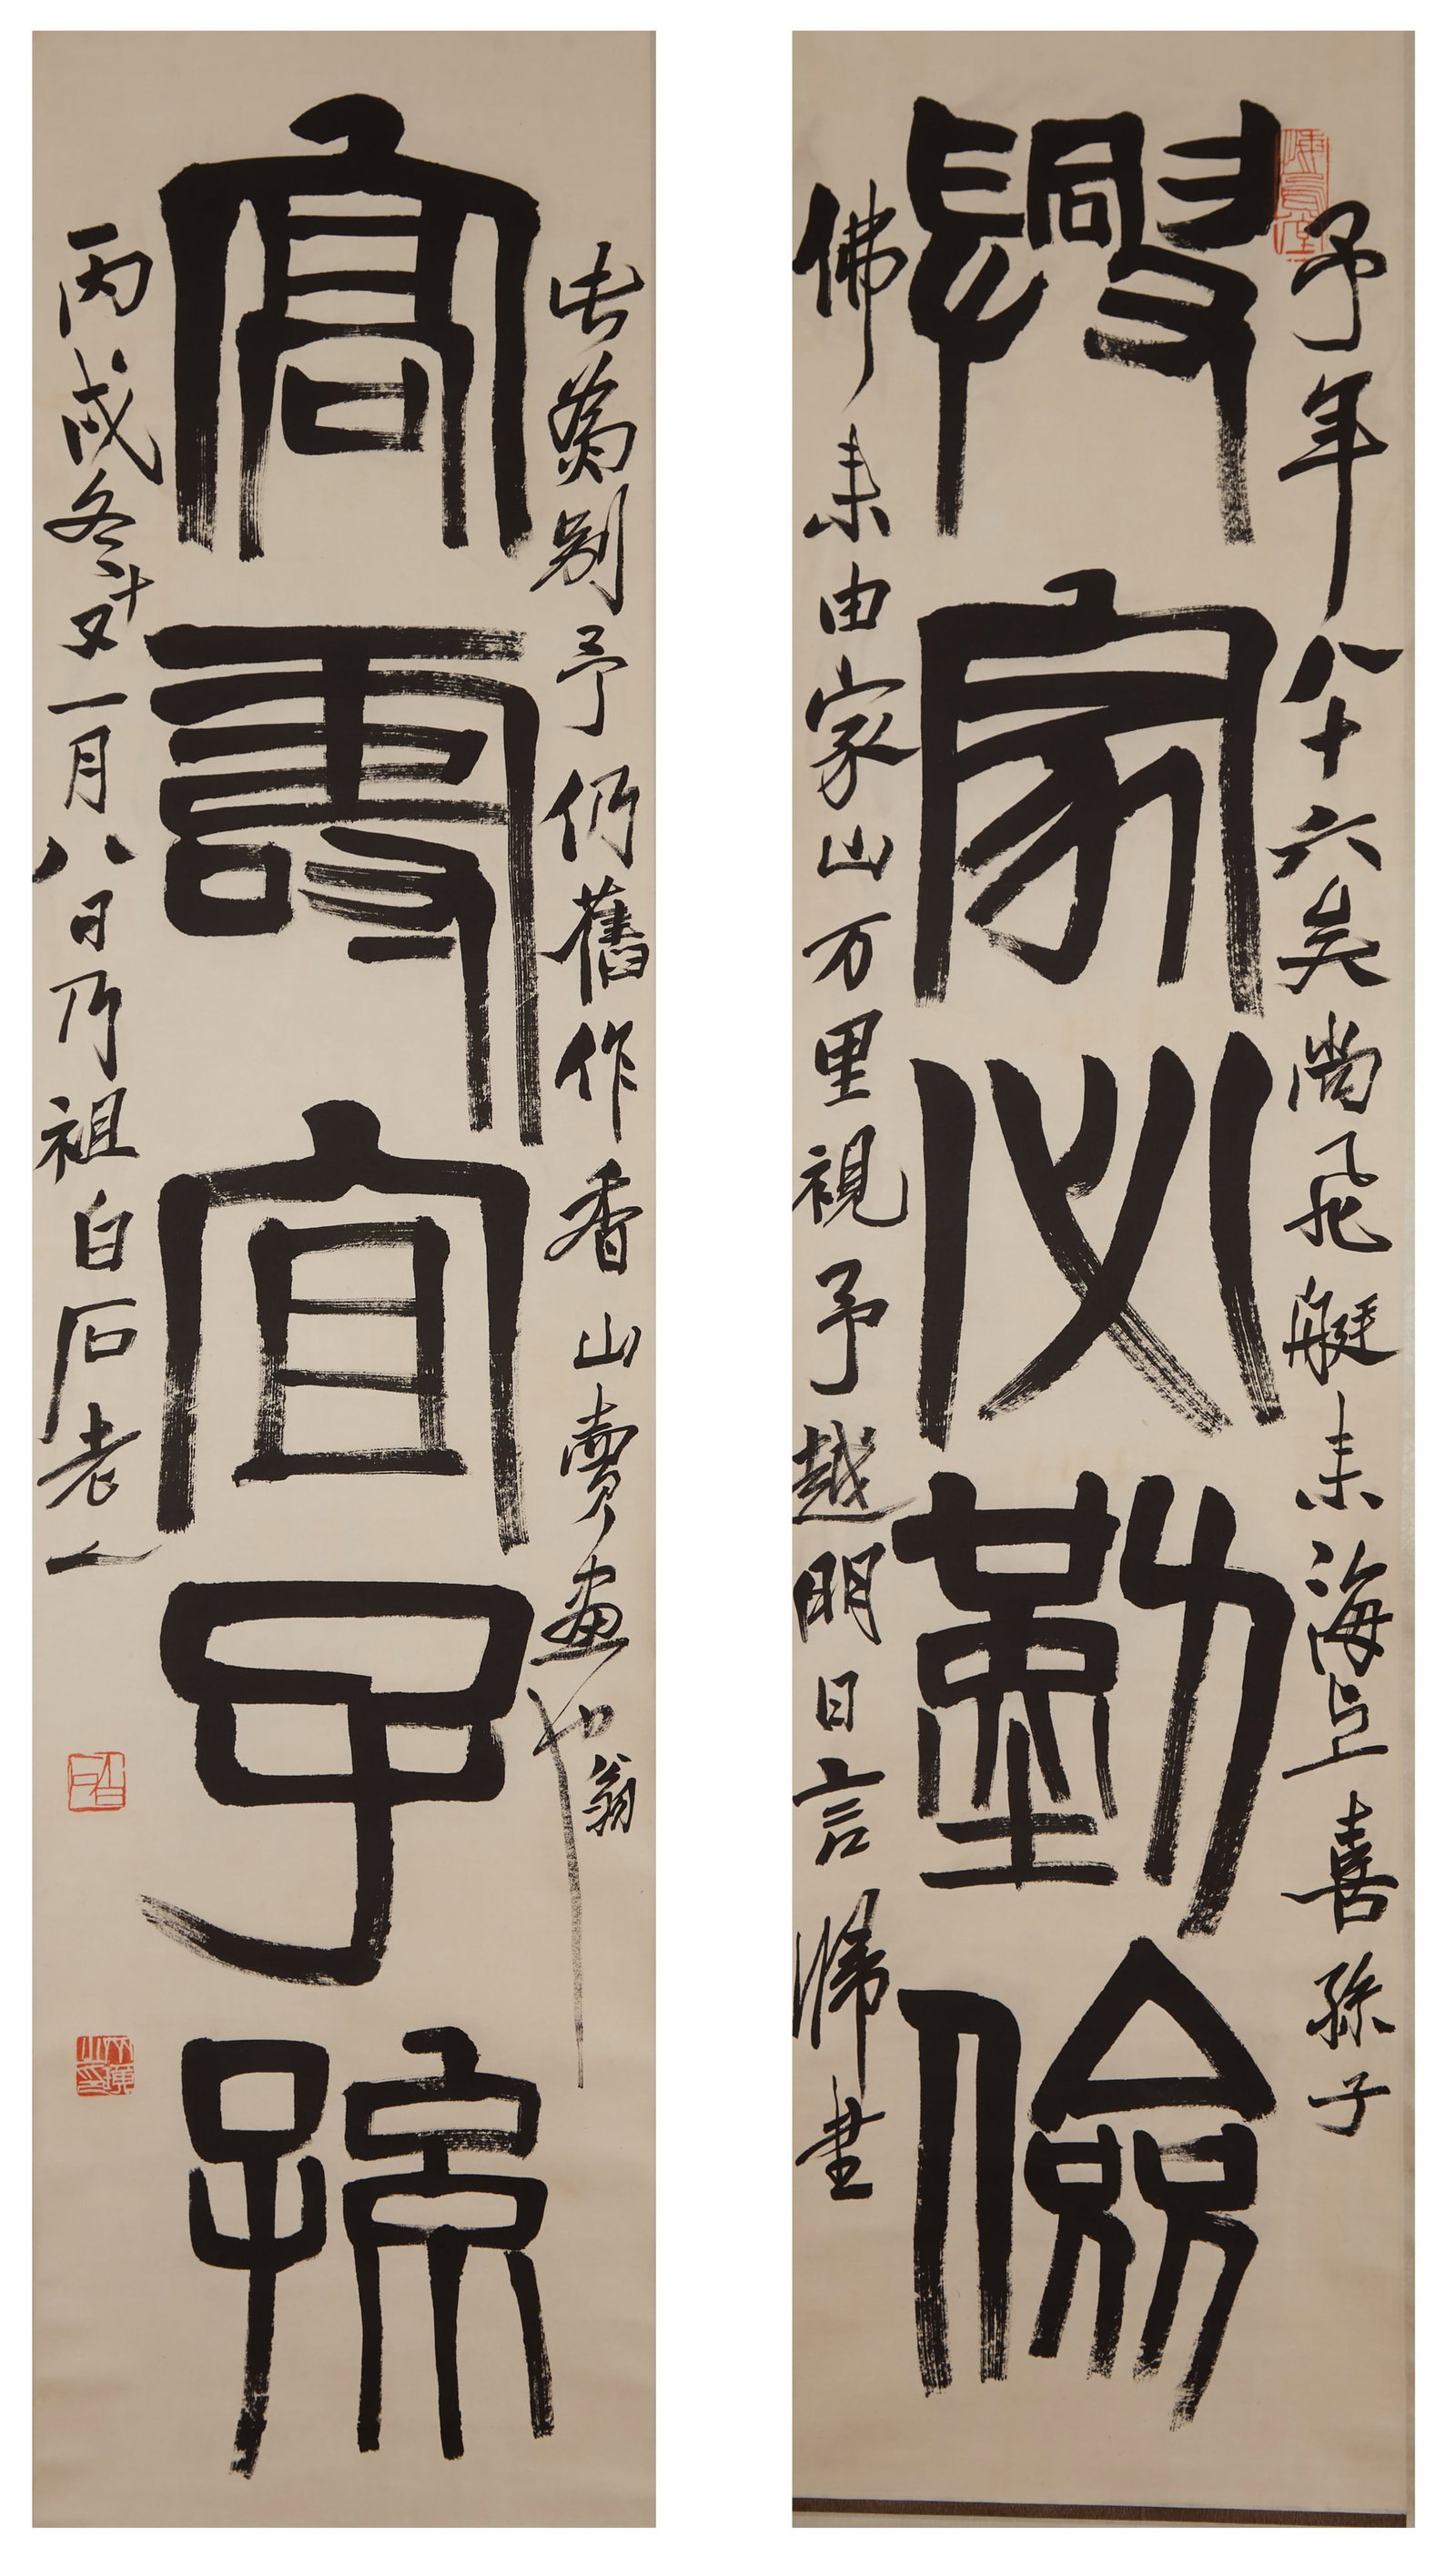 興家必勤儉
予年八十六矣尚飛艇来海上喜孫子
佛来由家山万里視予越明日言歸書
高壽宜子孫
此夤别予仍舊作香山賣畫翁也
丙戌冬十又一月八日乃祖白石老人